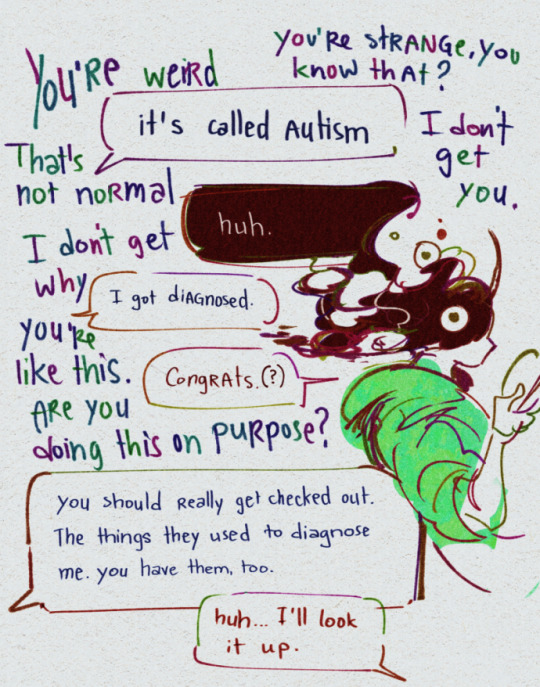 You're weird
you're strange, you
know that?
it's called Autism
I don't
get
you.
That's
not normal
huh.
I don't get
why
you're
like this.
Are you
doing this on purpose?
I got diagnosed.
Congrats.(?)
you should really get checked out.
The things they used to diagnose
me. you have them, too.
huh... I'll look
it up.